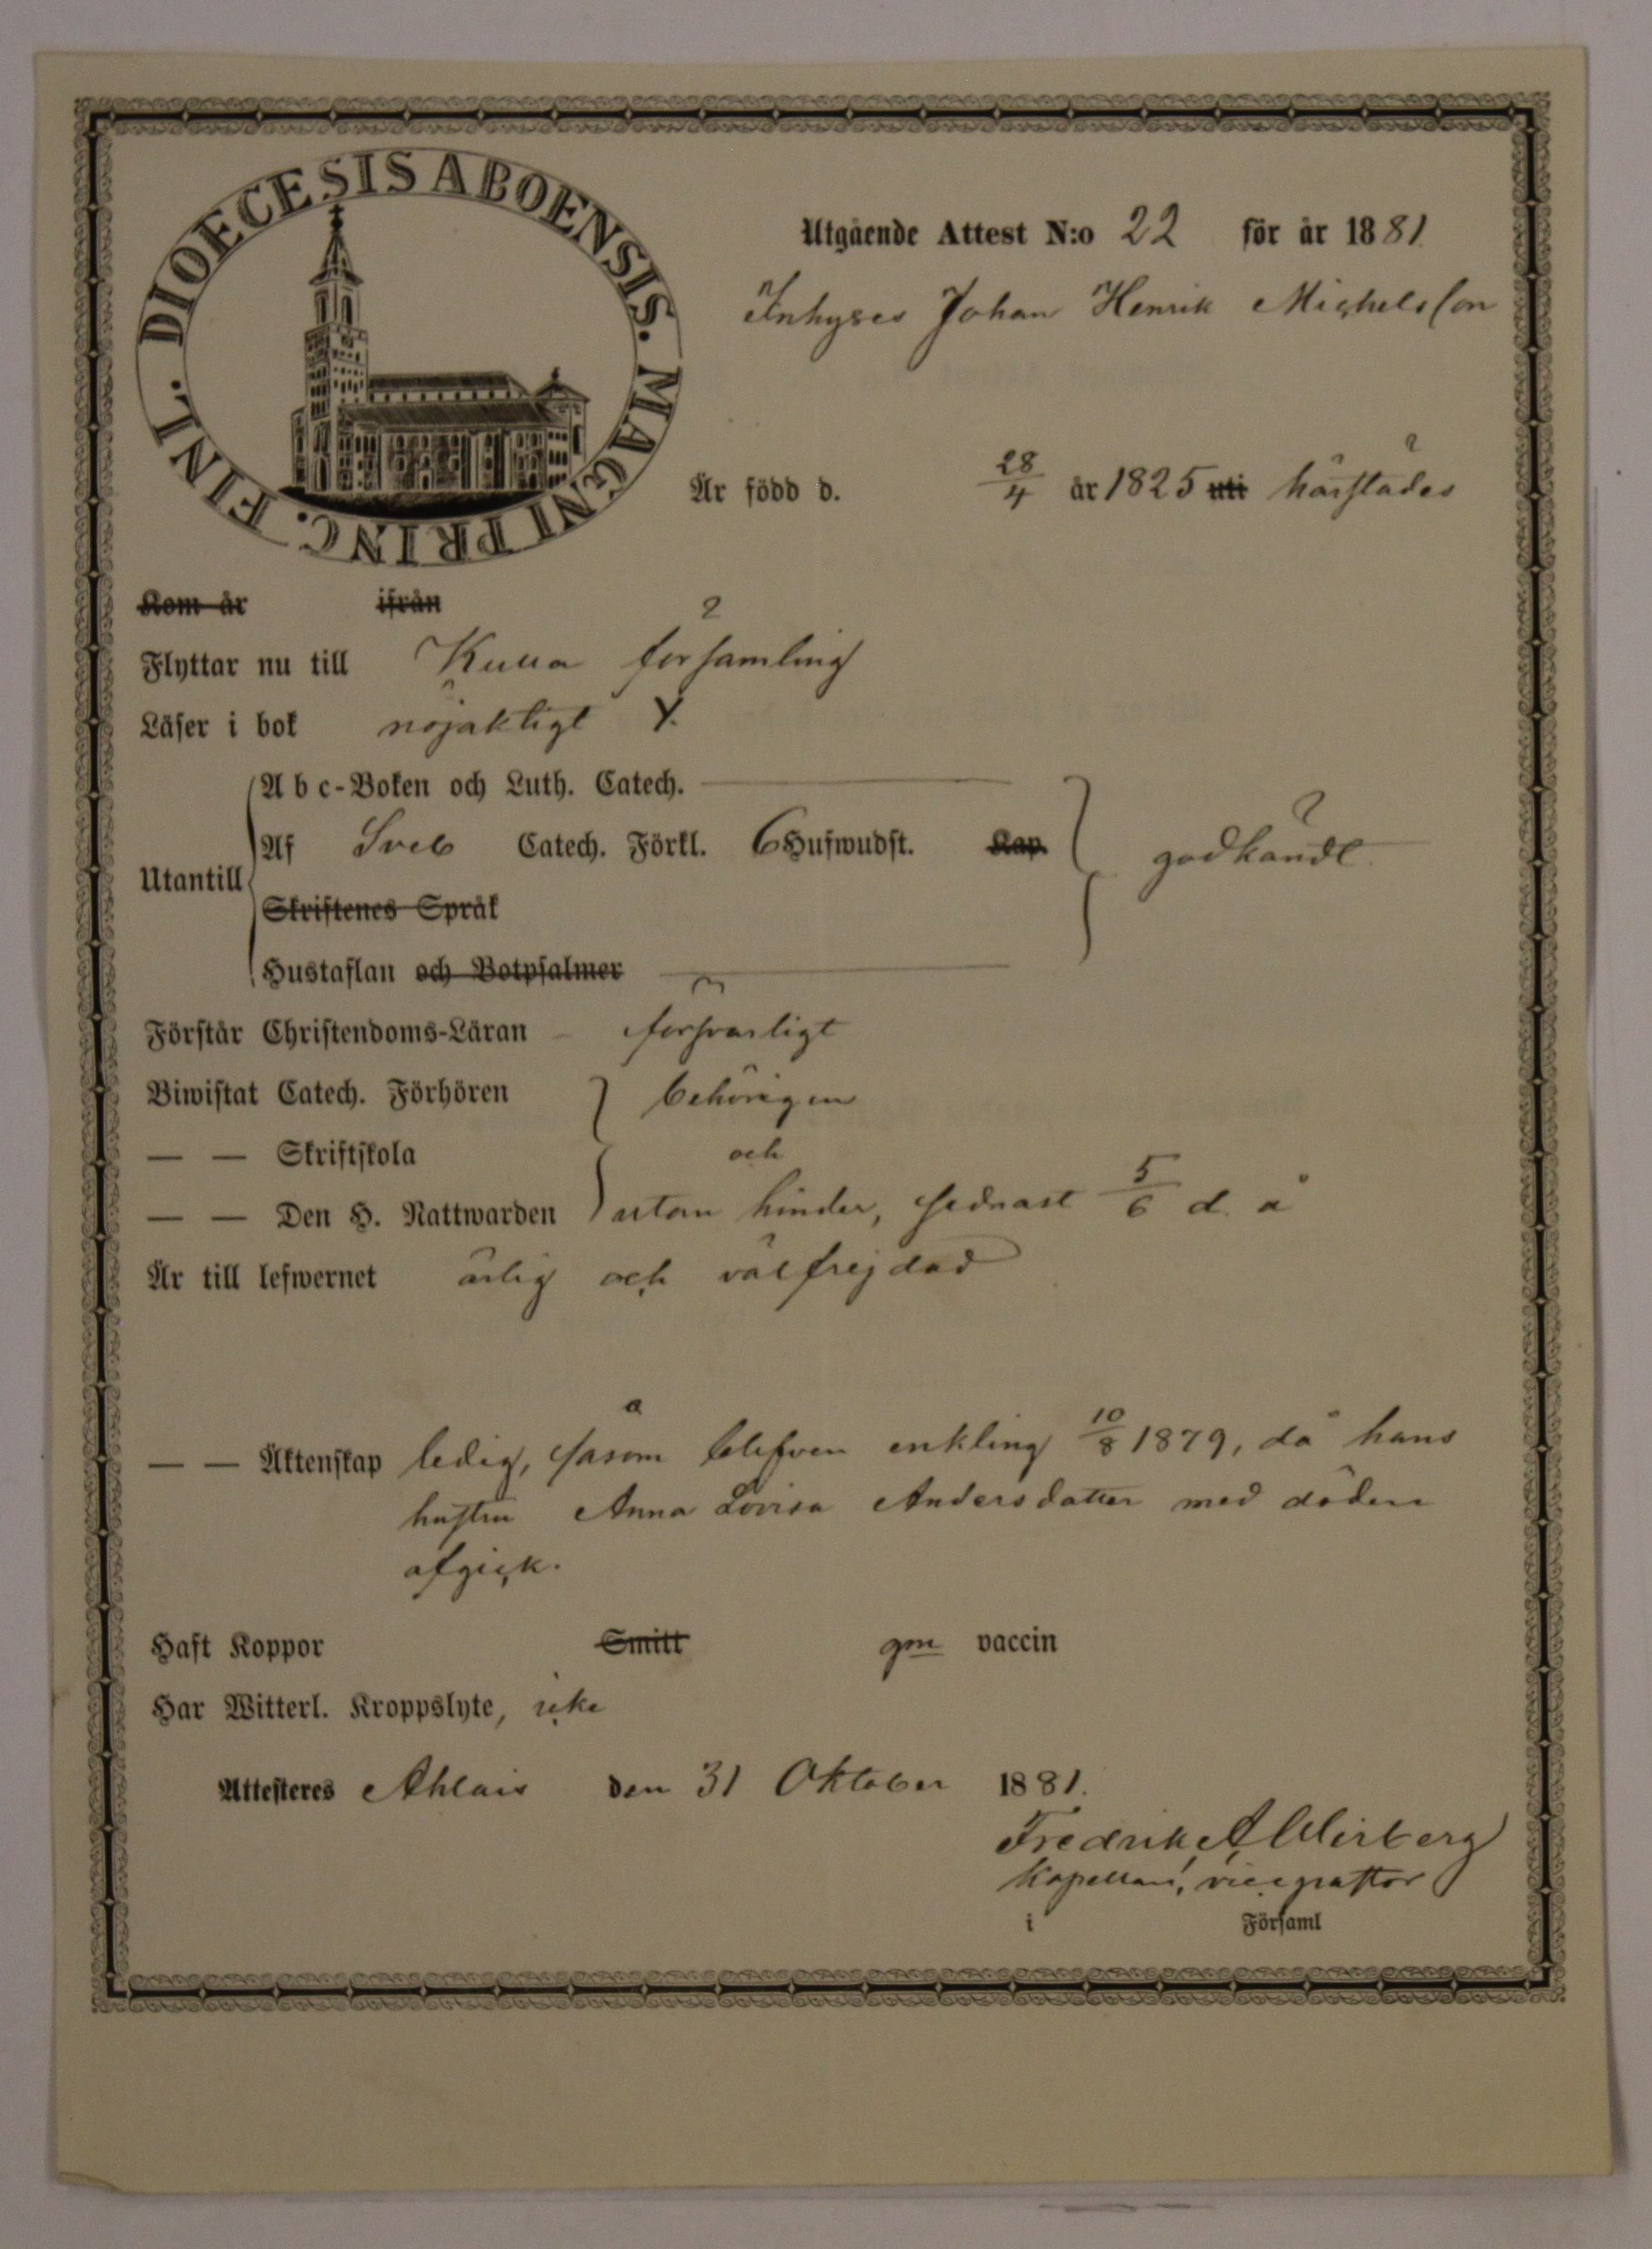 DIOECESIS ABOENSIS. MAGNI PRINC. FINL.
Utgående Attest N:o 22 för år 1881
Inhyses Johan Henrik Michelsson
Är född d. 28/4 år 1825 uti härstädes
Kom år ifrån
Flyttar nu till församling
Läser i bok nöjaktigt
Abc-Boken och Luth. Catech.
Af Sveb Catech. Förkl. 6 Hufwudst. Kap. godkändt
Utantill
Skriftenes Språk
Hustaflan och Botpsalmer
Förstår Christendoms-Läran försvarligt
Biwistat Catech. Förhören behörigen
— — Skriftskola och
— — Den H. Nattwarden utan hinder, sednast 5/6 d. å
Är till lefwernet ärlig och välfrejdad
— — Äktenskap ledig, såsom blefven enkling 10/8 1879, då hans
hustru Anna Lovisa Andersdotter med döden
afgick.
Haft Koppor Smitt gm vaccin
Har Witterl. Kroppslyte, icke
Attesteres Ahlais den 31 Oktober 1881.
Fredrik A
Kapellan, vicepastor
i Församl